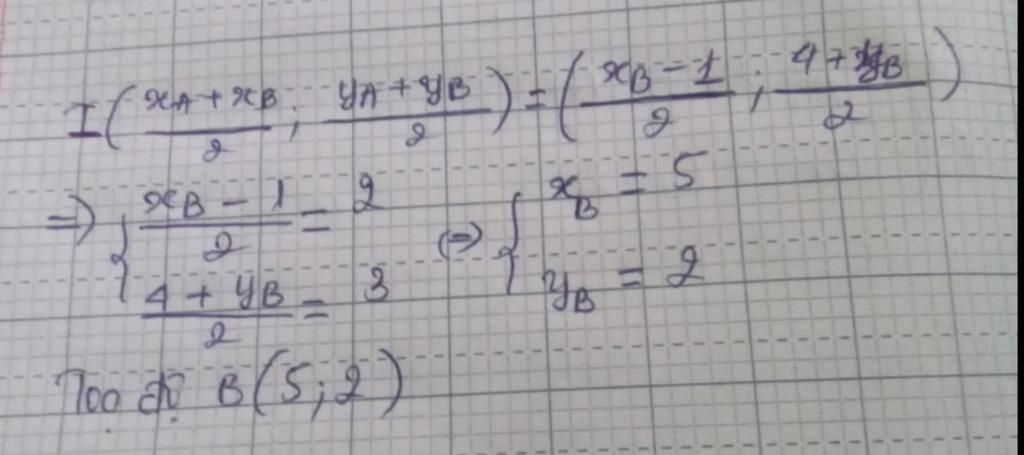 I(\frac{x_A + x_B}{2}; \frac{y_A + y_B}{2}) = (\frac{x_B - 1}{2}; \frac{4 + y_B}{2})
=> { \frac{x_B - 1}{2} = 2 <=> { x_B = 5
\frac{4 + y_B}{2} = 3 y_B = 2
Toạ độ B(5; 2)